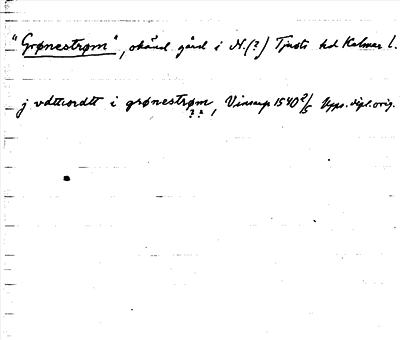 "Grønestrøm", okänd gård i N.(?) Tjusts hd Kalmar l.
j vdttordtt i grønestrøm, Vinsarp 1540 2/5 Upps. dipl. orig.
? ?